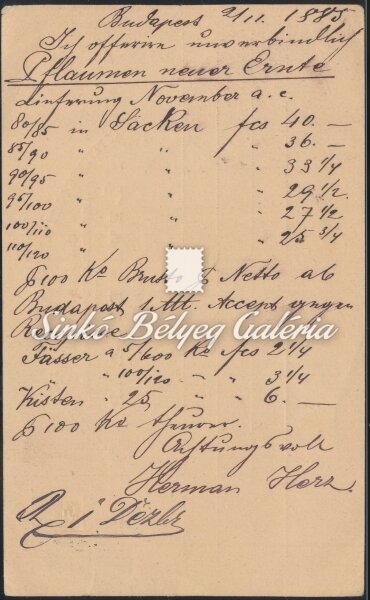 Budapest 2/11. 1885
Ich offerire unverbindlich
Pflaumen neuer Ernte
Lieferung November a. c.
80/85 in Sacken fcs 40. —
85/90 " " " 36. —
90/95 " " " 33 1/4
95/100 " " " 29 1/2.
100/110 " " " 27 1/2
110/120 " " " 25 3/4
100 Ko Brutto Netto ab
Budapest Accept gegen
Sinkó Bélyeg Galéria
Fässer a 5/600 Ko fcs 2 1/4
" 100/120 " " 3 1/4
Kisten " 25 " " 6. —
100 Ko theurer.
Achtungsvoll
Herman Herz.